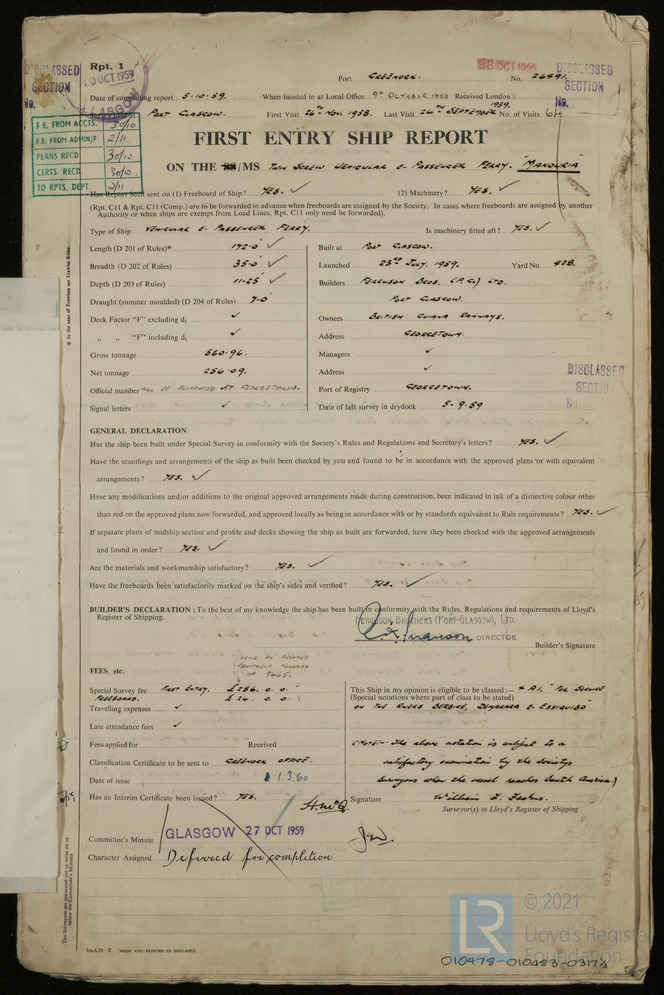 Rpt. 1
DISCLASSED SECTION No.
10 OCT 1959
GLASGOW
28 OCT 1959
Port GREENOCK. No. 26491.
DISCLASSED SECTION No.
Date of completing report 5-10-59. When handed in at Local Office 9TH OCTOBER 1959 Received London
PORT GLASGOW. First Visit 26TH NOV. 1958. Last Visit 24TH SEPTEMBER 1959. No. of Visits 64
F.E. FROM ACCTS. 30/10
F.E. FROM ADMIN/F 2/11
PLANS RECD 30/10
CERTS. RECD 30/10
TO RPTS. DEPT. 2/11
FIRST ENTRY SHIP REPORT
ON THE SS/MS TWIN SCREW VEHICULAR & PASSENGER FERRY. "MAKOURIA"
Has Report been sent on (1) Freeboard of Ship? YES. ✓ (2) Machinery? YES. ✓
(Rpt. C11 & Rpt. C11 (Comp.) are to be forwarded in advance when freeboards are assigned by the Society. In cases where freeboards are assigned by another
Authority or when ships are exempt from Load Lines, Rpt. C11 only need be forwarded).
Type of Ship VEHICULAR & PASSENGER FERRY. Is machinery fitted aft? YES. ✓
Length (D 201 of Rules)* 172.0 ✓ Built at PORT GLASGOW.
Breadth (D 202 of Rules) 35.0 ✓ Launched 23RD JULY. 1959. Yard No. 428.
Depth (D 203 of Rules) 11.25 ✓ Builders FERGUSON BROS. (P.G.) LTD.
Draught (summer moulded) (D 204 of Rules) 7.0 PORT GLASGOW.
Deck Factor "F" excluding d₁ ✓ Owners BRITISH GUIANA RAILWAYS.
" " "F" including d₁ ✓ Address GEORGETOWN.
Gross tonnage 560.96. Managers ✓
Net tonnage 256.09. Address ✓
Official number WILL BE ALLOTTED AT GEORGETOWN. Port of Registry GEORGETOWN.
Signal letters ✓ Date of last survey in drydock 5-9-59
DISCLASSED SECTION No.
GENERAL DECLARATION
Has the ship been built under Special Survey in conformity with the Society's Rules and Regulations and Secretary's letters? YES. ✓
Have the scantlings and arrangements of the ship as built been checked by you and found to be in accordance with the approved plans or with equivalent
arrangements? YES. ✓
Have any modifications and/or additions to the original approved arrangements made during construction, been indicated in ink of a distinctive colour other
than red on the approved plans now forwarded, and approved locally as being in accordance with or by standards equivalent to Rule requirements? YES. ✓
If separate plans of midship section and profile and decks showing the ship as built are forwarded, have they been checked with the approved arrangements
and found in order? YES. ✓
Are the materials and workmanship satisfactory? YES. ✓
Have the freeboards been satisfactorily marked on the ship's sides and verified? YES. ✓
BUILDER'S DECLARATION : To the best of my knowledge the ship has been built in conformity with the Rules, Regulations and requirements of Lloyd's
Register of Shipping.
FERGUSON BROTHERS (PORT-GLASGOW), LTD.
DIRECTOR
Builder's Signature
FEES, etc.
Special Survey fee PART ENTRY. £286. 0. 0
FREEBOARD. £ 24. 0. 0
Travelling expenses ✓
Late attendance fees ✓
Fees applied for Received
Classification Certificate to be sent to GREENOCK OFFICE.
Date of issue 1.3.60
Has an Interim Certificate been issued? YES.
This Ship in my opinion is eligible to be classed :— + A1. "FOR SERVICE
(Special notations where part of class to be stated)
ON THE RIVERS BERBICE, DEMERARA & ESSEQUIBO"
(NOTE:- The above notation is subject to a
satisfactory examination by the Society's
Surveyors when the vessel reaches South America.)
Signature
Surveyor(s) to Lloyd's Register of Shipping
Committee's Minute GLASGOW 27 OCT 1959
Character Assigned Deferred for completion
© 2021
LR
Lloyd's Register
Foundation
010478-010483-0317½